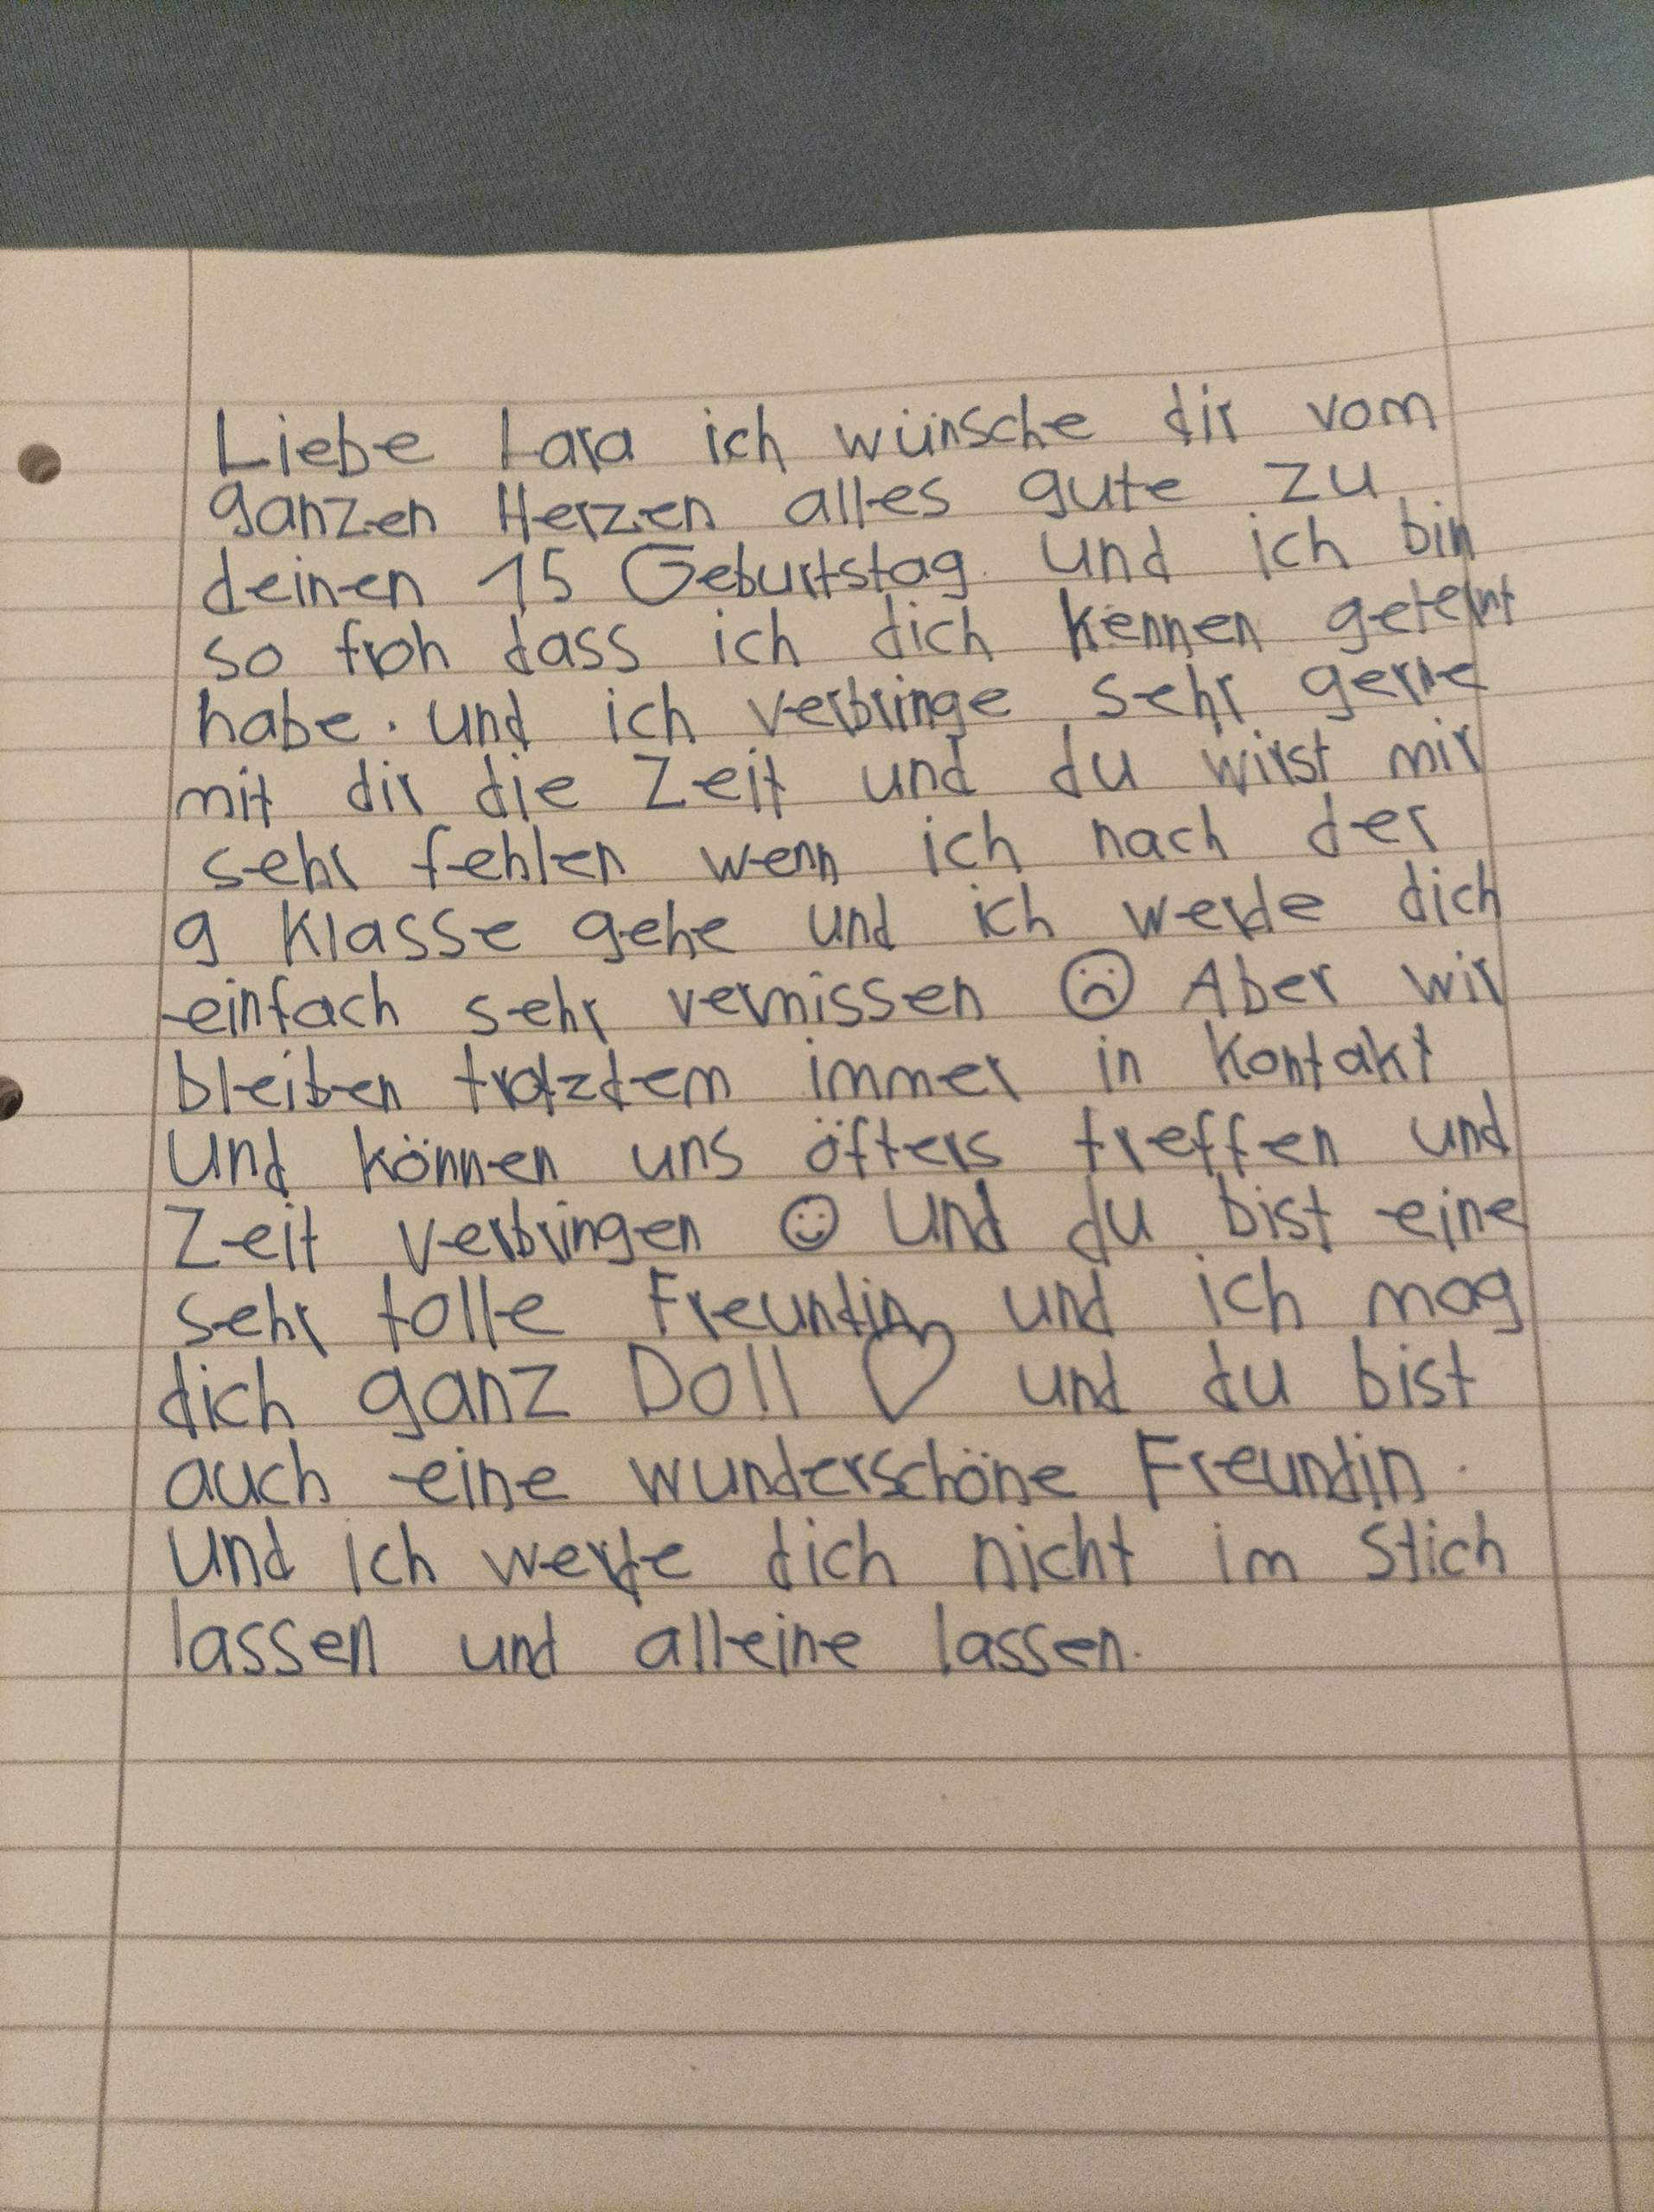 Liebe Lara ich wünsche dir vom
ganzen Herzen alles gute zu
deinen 15 Geburtstag. und ich bin
so froh dass ich dich kennen gelernt
habe. und ich verbringe sehr gerne
mit dir die Zeit und du wirst mir
sehr fehlen wenn ich nach der
9 Klasse gehe und ich werde dich
einfach sehr vermissen ☹ Aber wir
bleiben trotzdem immer in Kontakt
und können uns öfters treffen und
Zeit verbringen ☺ und du bist eine
sehr tolle Freundin und ich mag
dich ganz Doll ♡ und du bist
auch eine wunderschöne Freundin.
und ich werde dich nicht im Stich
lassen und alleine lassen.